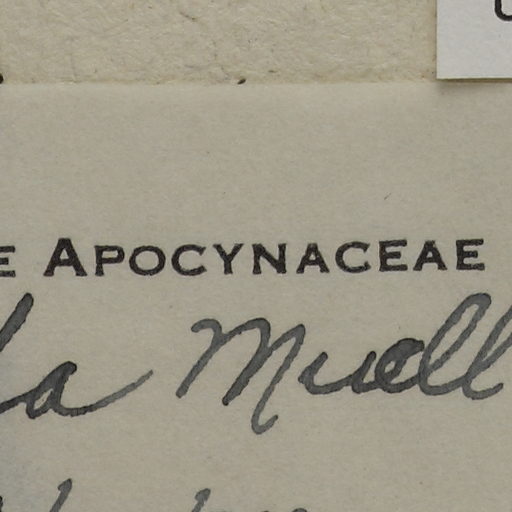 E APOCYNACEAE
la Muell